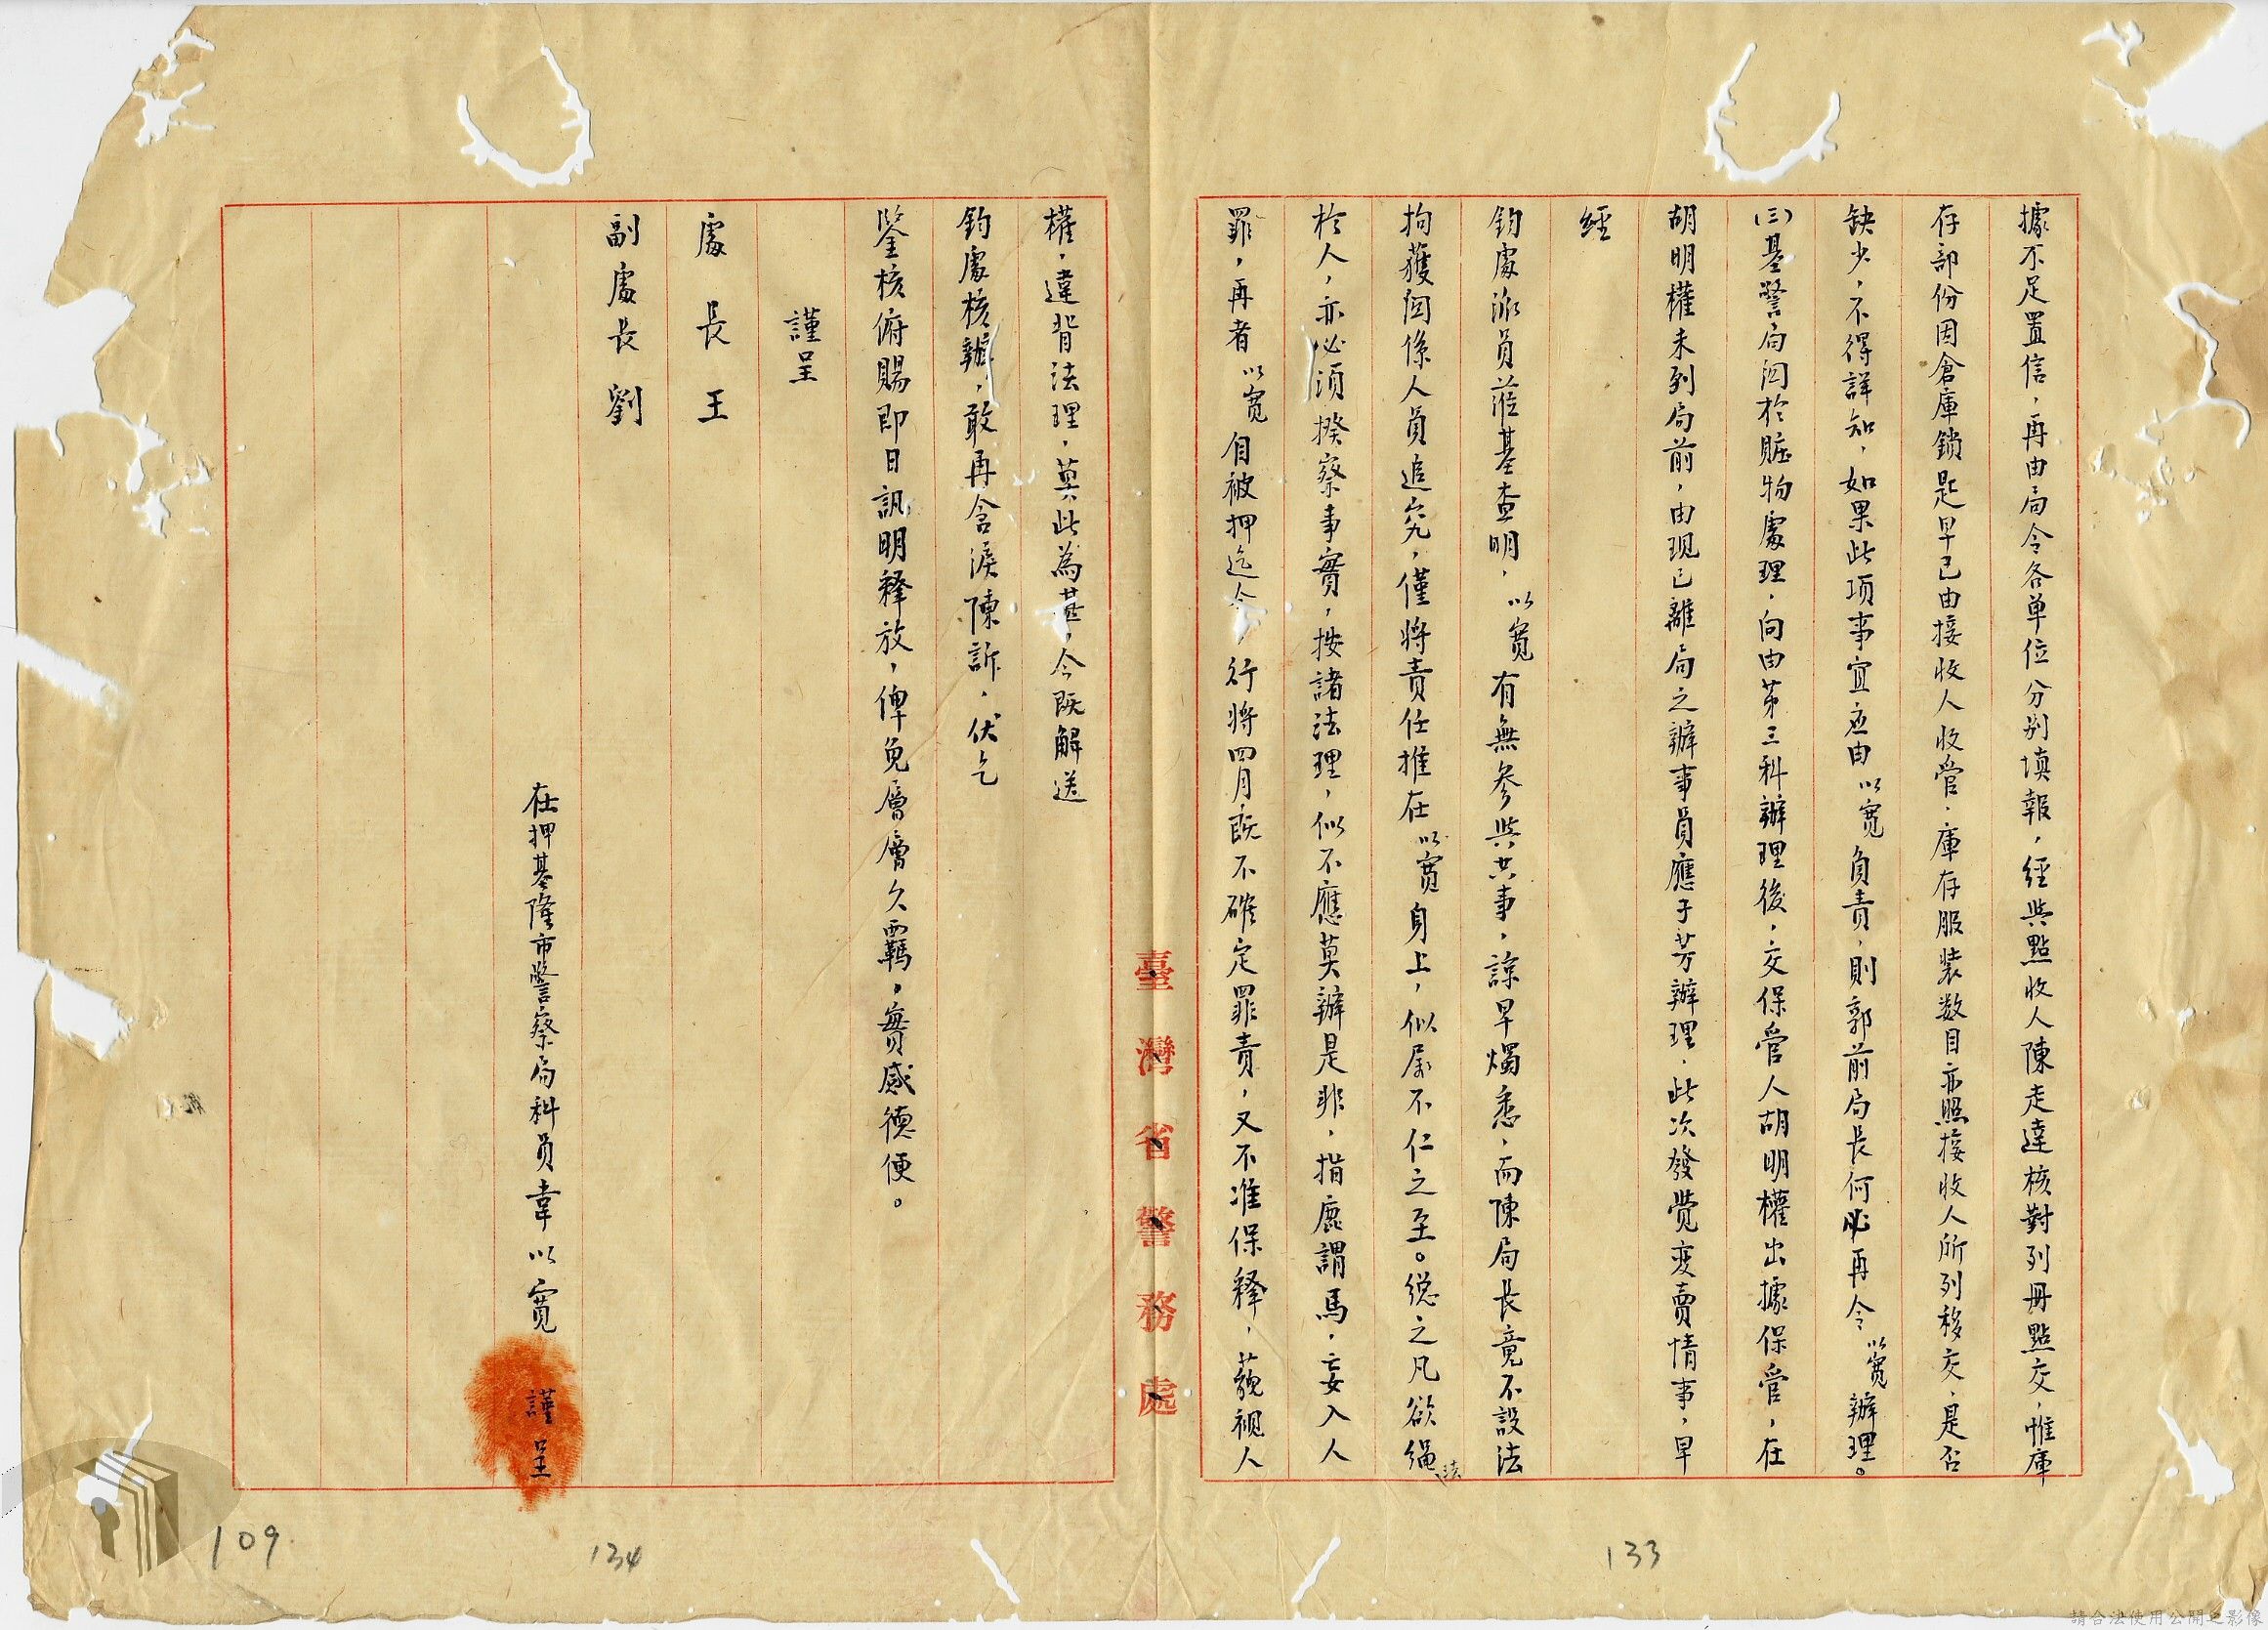 據不足置信，再由局令各单位分别填報，經與點收人陳走達核對列冊點交，惟庫
存部份因倉庫鎖匙早已由接收人收管，庫存服装数目亦照接收人所列移交，是否
缺少，不得詳知，如果此項事宜应由以寬負責，則郭前局長何必再令以寬辦理。
(三)基警局関於賍物處理，向由第三科辦理後，交保管人胡明權出據保管，在
胡明權未到局前，由现已離局之辦事員應子芳辦理，此次發覺变賣情事，早
經
鈞處派員蒞基查明，以寬有無參與其事，諒早燭悉，而陳局長竟不設法
拘獲関係人員追究，僅將責任推在以寬身上，似屬不仁之至。總之凡欲繩法
於人，亦必須揆察事實，按諸法理，似不應莫辦是非，指鹿謂馬，妄入人
罪，再者以寬自被押迄今，行將四月既不確定罪責，又不准保释，藐視人
權，違背法理，莫此為甚，今既解送
鈞處核辦，敢再含淚陳訴，伏乞
鑒核俯賜即日訊明释放，俾免層層久羈，實感德便。
謹呈
處長王
副處長劉
在押基隆市警察局科員韋以寬 謹呈
臺灣省警務處
109
134
133
請合法使用公開之影像